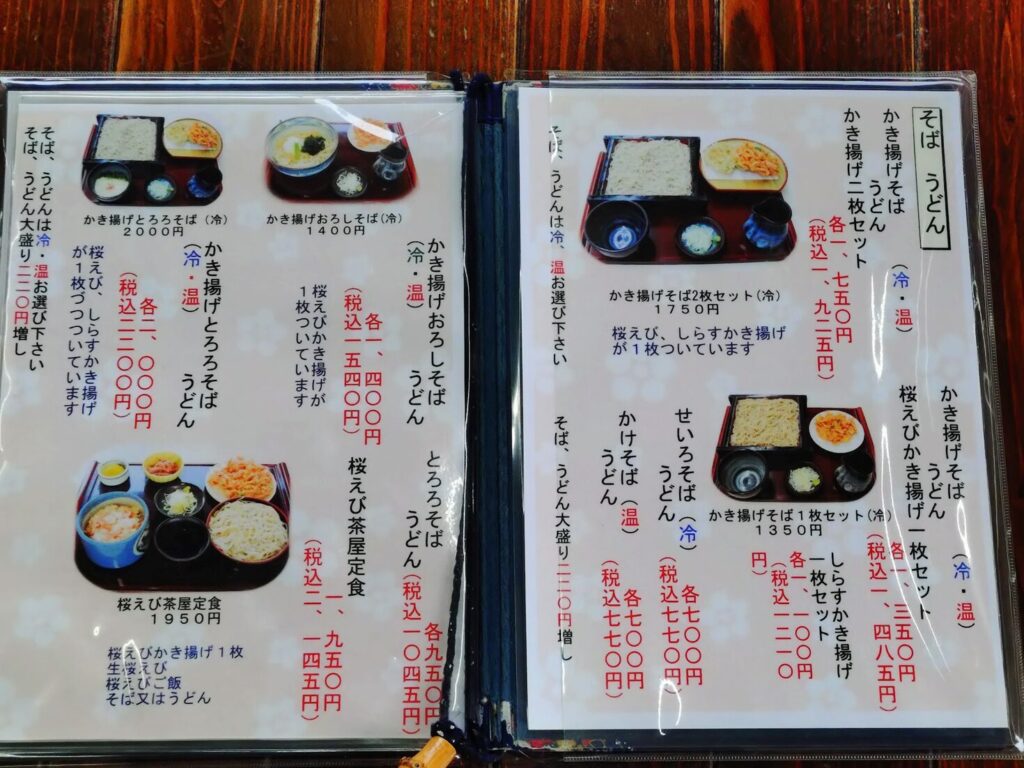 そば　うどん
かき揚げそば
うどん
（冷・温）
かき揚げ二枚セット
各一、七五〇円
（税込一、九二五円）
かき揚げそば2枚セット(冷)
１７５０円
桜えび、しらすかき揚げ
が１枚ついています
そば、うどんは冷、温お選び下さい
かき揚げそば
うどん
（冷・温）
桜えびかき揚げ一枚セット
各一、三五〇円
（税込一、四八五円）
しらすかき揚げ
一枚セット
各一、一〇〇円
（税込一二一〇
円）
かき揚げそば１枚セット(冷)
１３５０円
せいろそば（冷）
うどん
各七〇〇円
（税込七七〇円）
かけそば（温）
うどん
各七〇〇円
（税込七七〇円）
そば、うどん大盛り二二〇円増し
かき揚げおろしそば（冷）
１４００円
かき揚げおろしそば
うどん
（冷・温）
各一、四〇〇円
（税込一五四〇円）
桜えびかき揚げが
１枚ついています
かき揚げとろろそば（冷）
２０００円
かき揚げとろろそば
うどん
（冷・温）
各二、〇〇〇円
（税込二二〇〇円）
桜えび、しらすかき揚げ
が１枚づつついています
そば、うどんは冷・温お選び下さい
そば、うどん大盛り二二〇円増し
とろろそば
うどん
各九五〇円
（税込一〇四五円）
桜えび茶屋定食
一、九五〇円
（税込二、一四五円）
桜えび茶屋定食
１９５０円
桜えびかき揚げ１枚
生桜えび
桜えびご飯
そば又はうどん